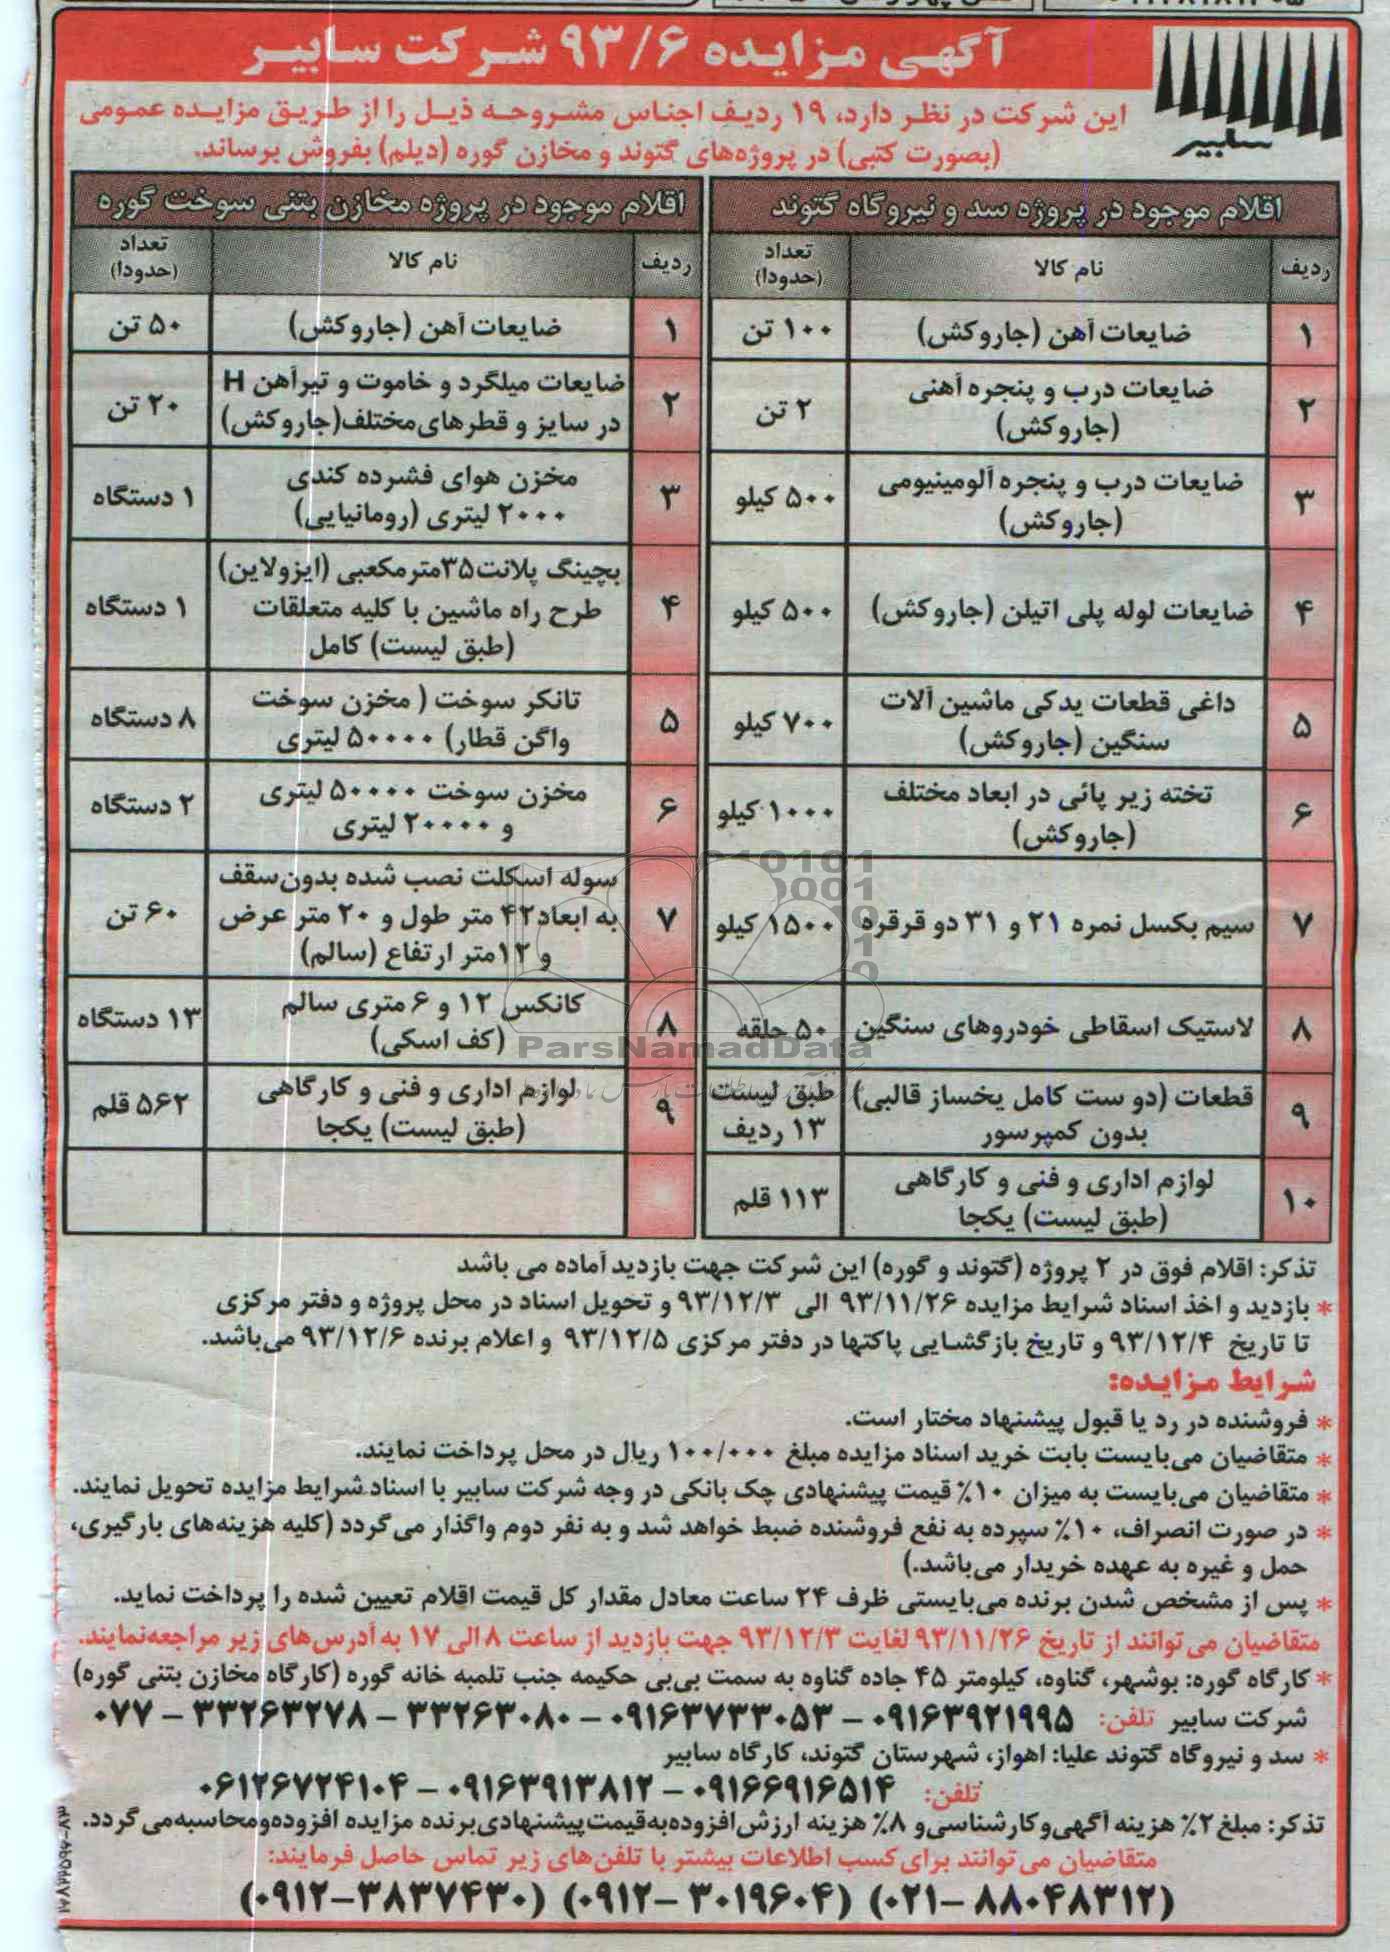 آگهی مزایده ۹۳/۶ شرکت سابیر
سابیر
این شرکت در نظر دارد، ۱۹ ردیف اجناس مشروحه ذیل را از طریق مزایده عمومی
(بصورت کتبی) در پروژه‌های گتوند و مخازن گوره (دیلم) بفروش برساند.
اقلام موجود در پروژه سد و نیروگاه گتوند
ردیف نام کالا تعداد (حدودا)
۱ ضایعات آهن (جاروکش) ۱۰۰ تن
۲ ضایعات درب و پنجره آهنی
(جاروکش) ۲ تن
۳ ضایعات درب و پنجره آلومینیومی
(جاروکش) ۵۰۰ کیلو
۴ ضایعات لوله پلی اتیلن (جاروکش) ۵۰۰ کیلو
۵ داغی قطعات یدکی ماشین آلات
سنگین (جاروکش) ۷۰۰ کیلو
۶ تخته زیر پائی در ابعاد مختلف
(جاروکش) ۱۰۰۰ کیلو
۷ سیم بکسل نمره ۲۱ و ۳۱ دو قرقره ۱۵۰۰ کیلو
۸ لاستیک اسقاطی خودروهای سنگین ۵۰ حلقه
۹ قطعات (دو ست کامل یخساز قالبی)
بدون کمپرسور طبق لیست
۱۳ ردیف
۱۰ لوازم اداری و فنی و کارگاهی
(طبق لیست) یکجا ۱۱۳ قلم
اقلام موجود در پروژه مخازن بتنی سوخت گوره
ردیف نام کالا تعداد (حدودا)
۱ ضایعات آهن (جاروکش) ۵۰ تن
۲ ضایعات میلگرد و خاموت و تیرآهن H
در سایز و قطرهای‌مختلف(جاروکش) ۲۰ تن
۳ مخزن هوای فشرده کندی
۲۰۰۰ لیتری (رومانیایی) ۱ دستگاه
۴ بچینگ پلانت۳۵مترمکعبی (ایزولاین)
طرح راه ماشین با کلیه متعلقات
(طبق لیست) کامل ۱ دستگاه
۵ تانکر سوخت ( مخزن سوخت
واگن قطار) ۵۰۰۰۰ لیتری ۸ دستگاه
۶ مخزن سوخت ۵۰۰۰۰ لیتری
و ۲۰۰۰۰ لیتری ۲ دستگاه
۷ سوله اسکلت نصب شده بدون‌سقف
به ابعاد۴۲ متر طول و ۲۰ متر عرض
و ۱۲متر ارتفاع (سالم) ۶۰ تن
۸ کانکس ۱۲ و ۶ متری سالم
(کف اسکی) ۱۳ دستگاه
۹ لوازم اداری و فنی و کارگاهی
(طبق لیست) یکجا ۵۶۲ قلم
ParsNamadData
تذکر: اقلام فوق در ۲ پروژه (گتوند و گوره) این شرکت جهت بازدید آماده می باشد
* بازدید و اخذ اسناد شرایط مزایده ۹۳/۱۱/۲۶ الی ۹۳/۱۲/۳ و تحویل اسناد در محل پروژه و دفتر مرکزی
تا تاریخ ۹۳/۱۲/۴ و تاریخ بازگشایی پاکتها در دفتر مرکزی ۹۳/۱۲/۵ و اعلام برنده ۹۳/۱۲/۶ می‌باشد.
شرایط مزایده:
* فروشنده در رد یا قبول پیشنهاد مختار است.
* متقاضیان می‌بایست بابت خرید اسناد مزایده مبلغ ۱۰۰/۰۰۰ ریال در محل پرداخت نمایند.
* متقاضیان می‌بایست به میزان ۱۰٪ قیمت پیشنهادی چک بانکی در وجه شرکت سابیر با اسناد شرایط مزایده تحویل نمایند.
* در صورت انصراف، ۱۰٪ سپرده به نفع فروشنده ضبط خواهد شد و به نفر دوم واگذار می‌گردد (کلیه هزینه‌های بارگیری،
حمل و غیره به عهده خریدار می‌باشد.)
* پس از مشخص شدن برنده می‌بایستی ظرف ۲۴ ساعت معادل مقدار کل قیمت اقلام تعیین شده را پرداخت نماید.
متقاضیان می‌توانند از تاریخ ۹۳/۱۱/۲۶ لغایت ۹۳/۱۲/۳ جهت بازدید از ساعت ۸ الی ۱۷ به آدرس‌های زیر مراجعه‌نمایند.
* کارگاه گوره: بوشهر، گناوه، کیلومتر ۴۵ جاده گناوه به سمت بی‌بی حکیمه جنب تلمبه خانه گوره (کارگاه مخازن بتنی گوره)
شرکت سابیر تلفن: ۰۹۱۶۳۹۲۱۹۹۵ – ۰۹۱۶۳۷۳۳۰۵۳ – ۳۳۲۶۳۰۸۰ – ۳۳۲۶۳۲۷۸ – ۰۷۷
* سد و نیروگاه گتوند علیا: اهواز، شهرستان گتوند، کارگاه سابیر
تلفن: ۰۹۱۶۶۹۱۶۵۱۴ – ۰۹۱۶۳۹۱۳۸۱۲ – ۰۶۱۲۶۷۲۴۱۰۴
تذکر: مبلغ ۲٪ هزینه آگهی‌و‌کارشناسی‌و ۸٪ هزینه ارزش‌افزوده‌به‌قیمت‌پیشنهادی‌برنده مزایده افزوده‌ومحاسبه‌می‌گردد.
متقاضیان می‌توانند برای کسب اطلاعات بیشتر با تلفن‌های زیر تماس حاصل فرمایند:
(۰۲۱– ۸۸۰۴۸۳۱۲) (۰۹۱۲– ۳۰۱۹۶۰۴) (۰۹۱۲–۳۸۳۷۴۳۰)